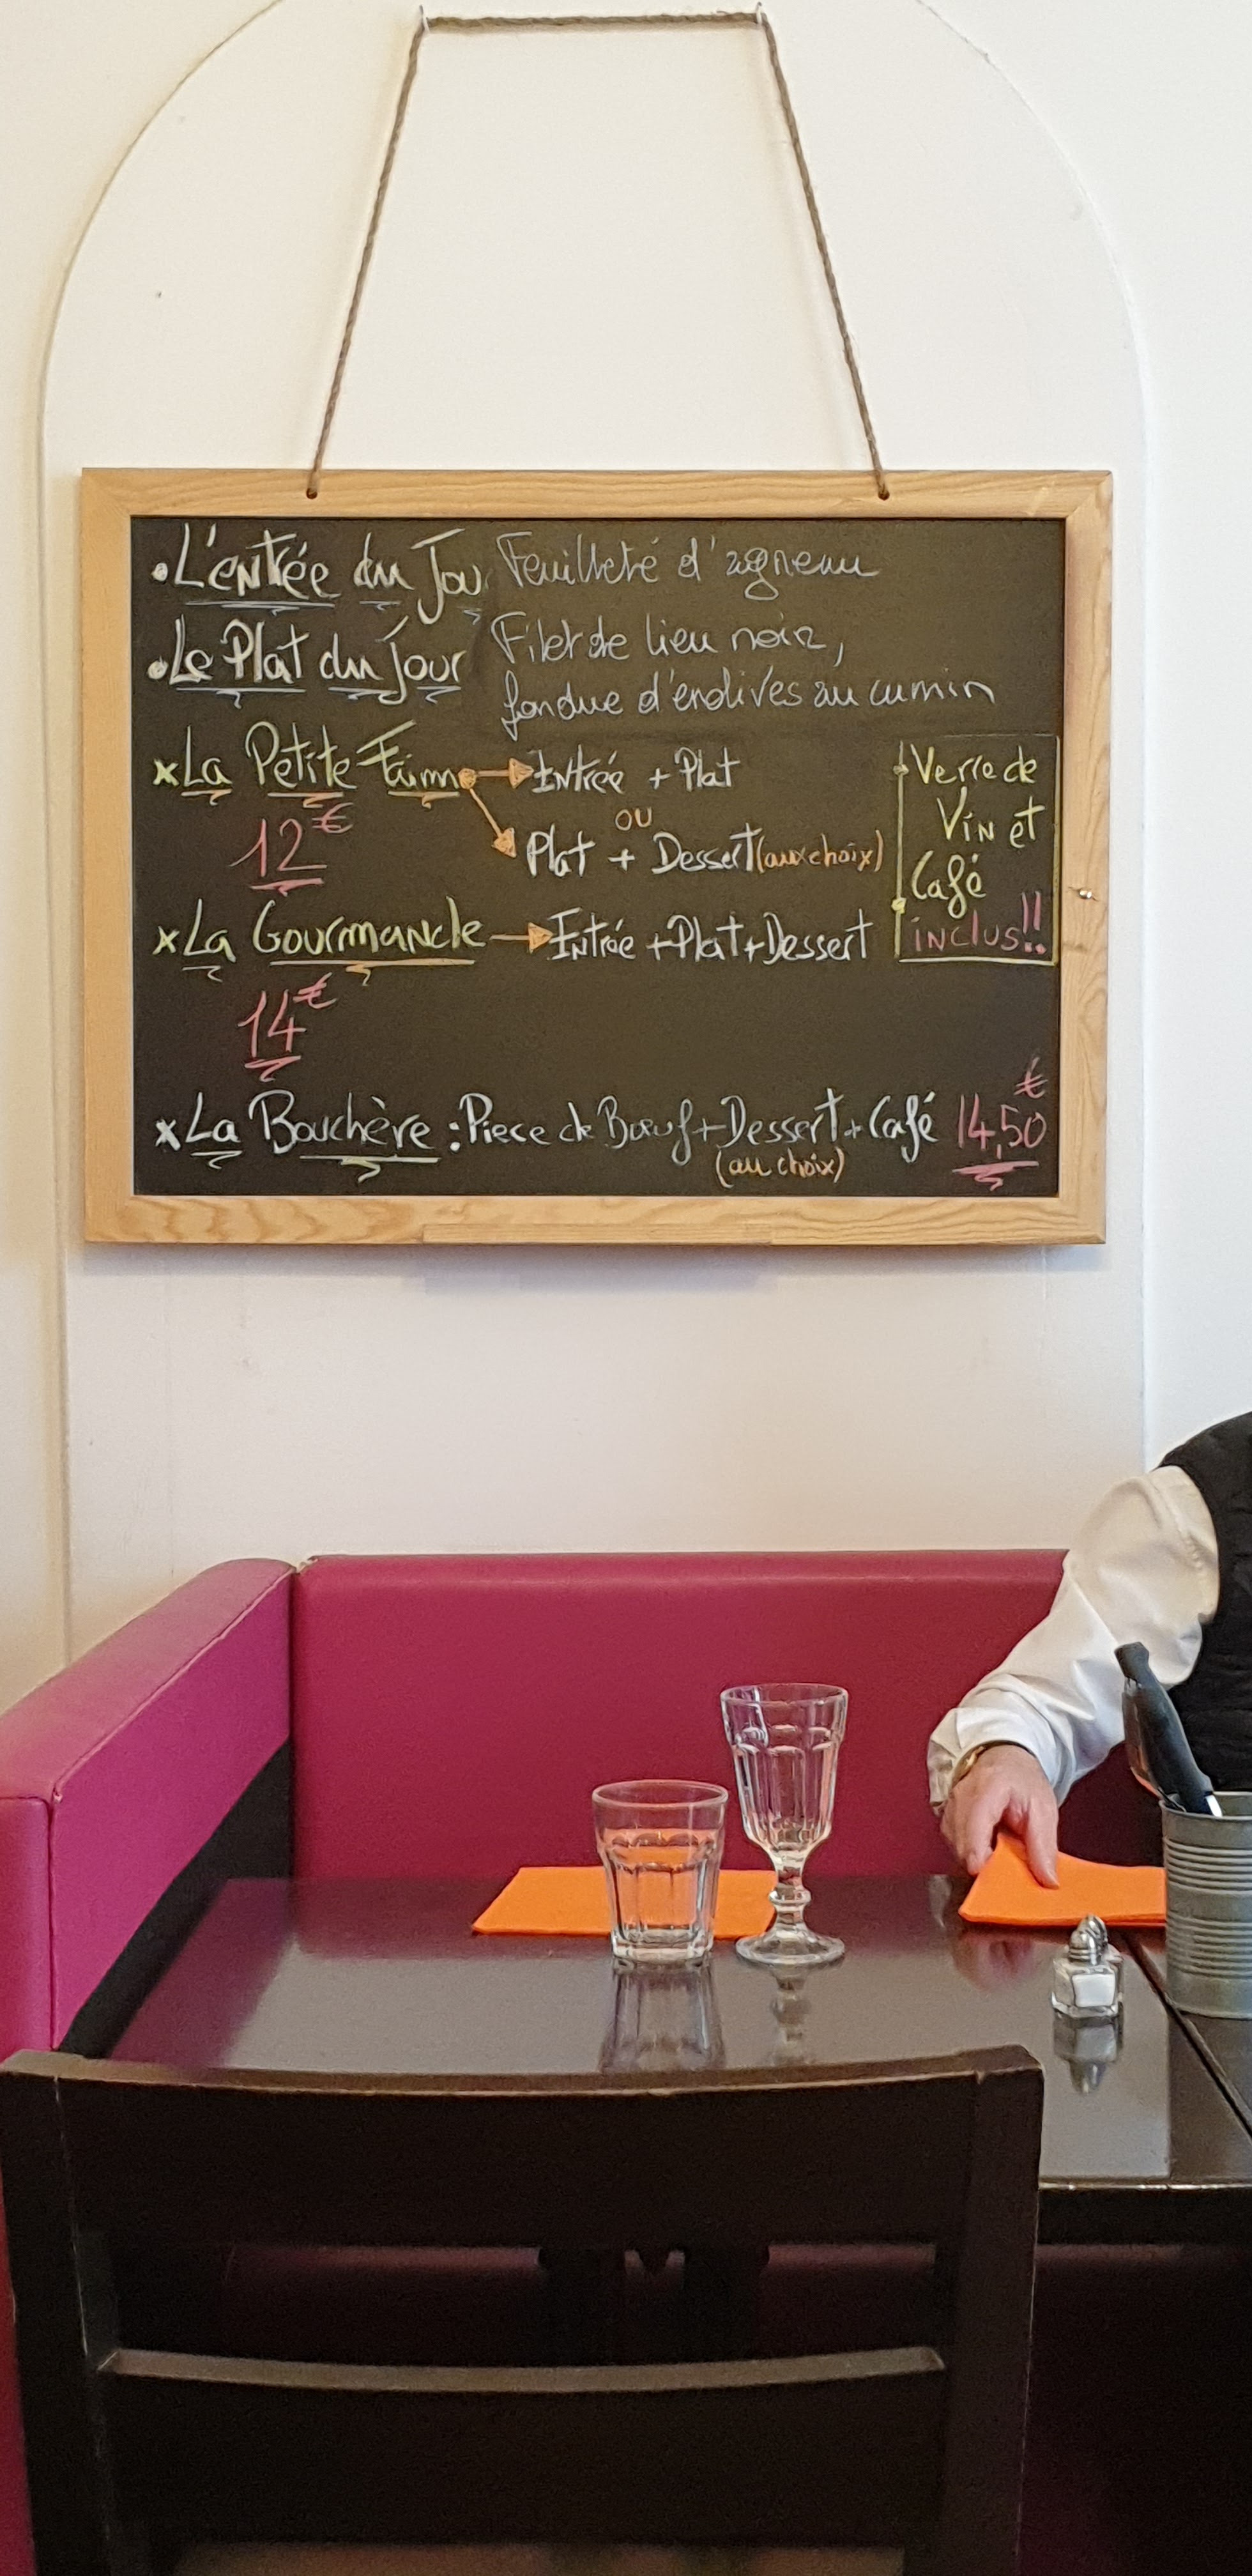 •L'entrée du Jou Feuilleté d'agneau
•Le Plat du Jour Filet de lieu noir,
fondue d'endives au cumin
×La Petite Faim → Entrée + Plat
12€
ou
Plat + Dessert (aux choix)
Verre de
Vin et
Café
inclus!!
×La Gourmande → Entrée + Plat + Dessert
14€
×La Bouchère : Piece de Bœuf + Dessert + Café 14,50€
(au choix)